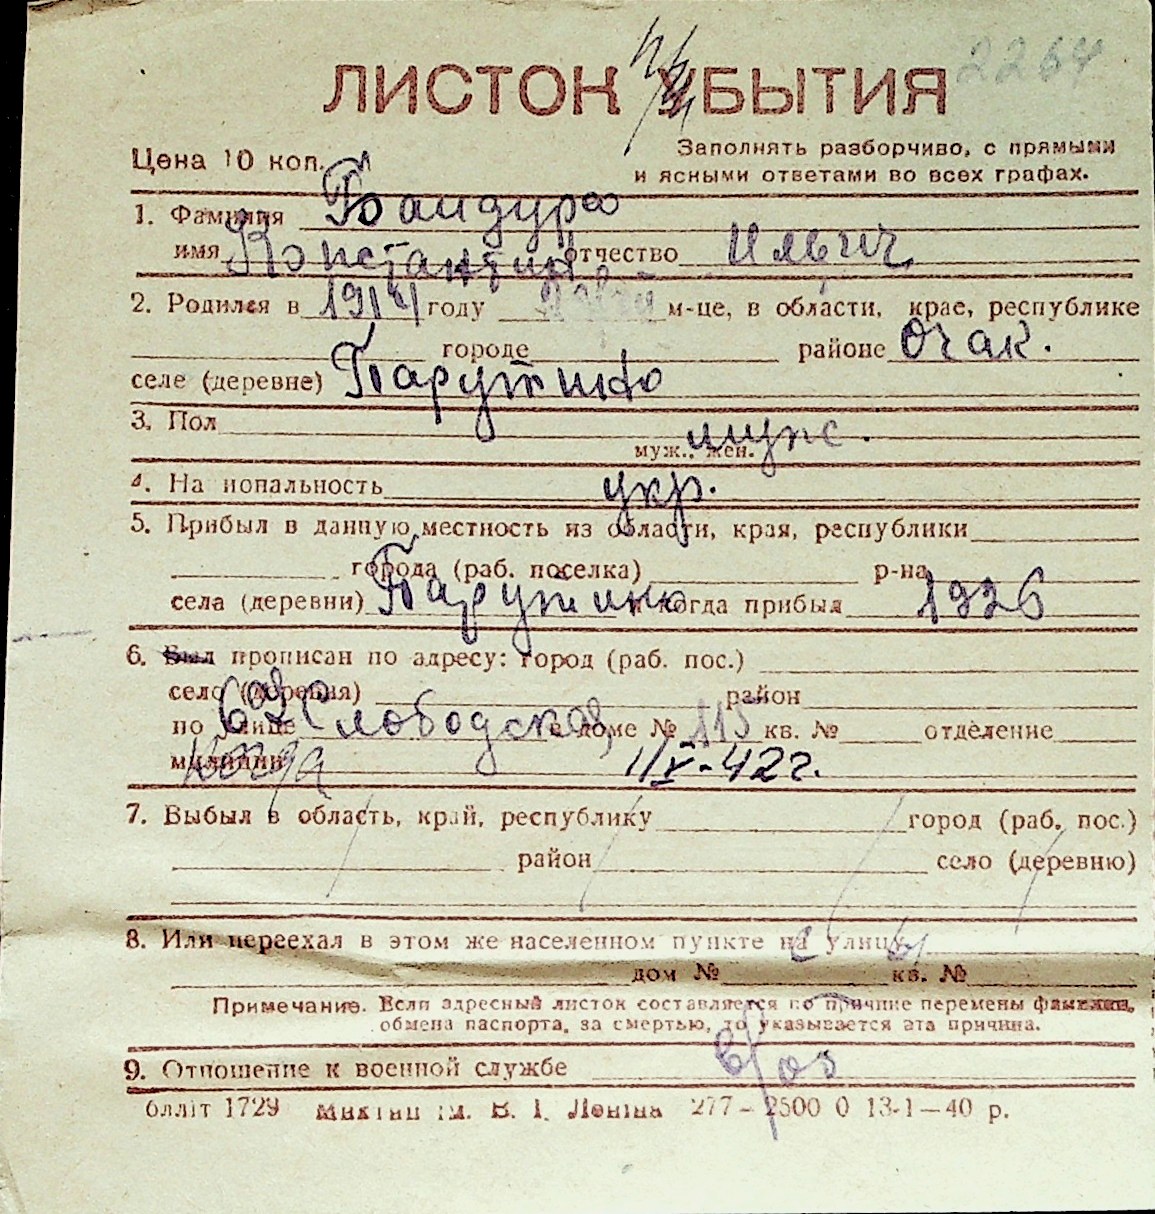 2264
ЛИСТОК УБЫТИЯ
Цена 10 коп.
Заполнять разборчиво, с прямыми
и ясными ответами во всех графах.
1. Фамилия Бандура
имя Константин отчество Ильич
2. Родился в 1914 году м-це, в области, крае, республике
городе районе Очак.
селе (деревне) Парутино
3. Пол муж.
муж., жен.
4. Национальность укр.
5. Прибыл в данную местность из области, края, республики
города (раб. поселка) р-на
села (деревни) Парутино и когда прибыл 1926
6. Был прописан по адресу: город (раб. пос.)
село (деревня) район
по улице Слободская, в доме № 115 кв. № отделение
милиции когда 1/V-42 г.
7. Выбыл в область, край, республику город (раб. пос.)
район село (деревню)
8. Или переехал в этом же населенном пункте на улицу
дом № кв. №
Примечание. Если адресный листок составляется по причине перемены фамилии,
обмена паспорта, за смертью, то указывается эта причина.
9. Отношение к военной службе в/об
бплліт 1729 Миктип ім. В. І. Леніна 277—2500 0 13-1—40 р.